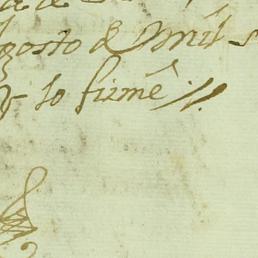 gosto de mil s
y lo firmé //